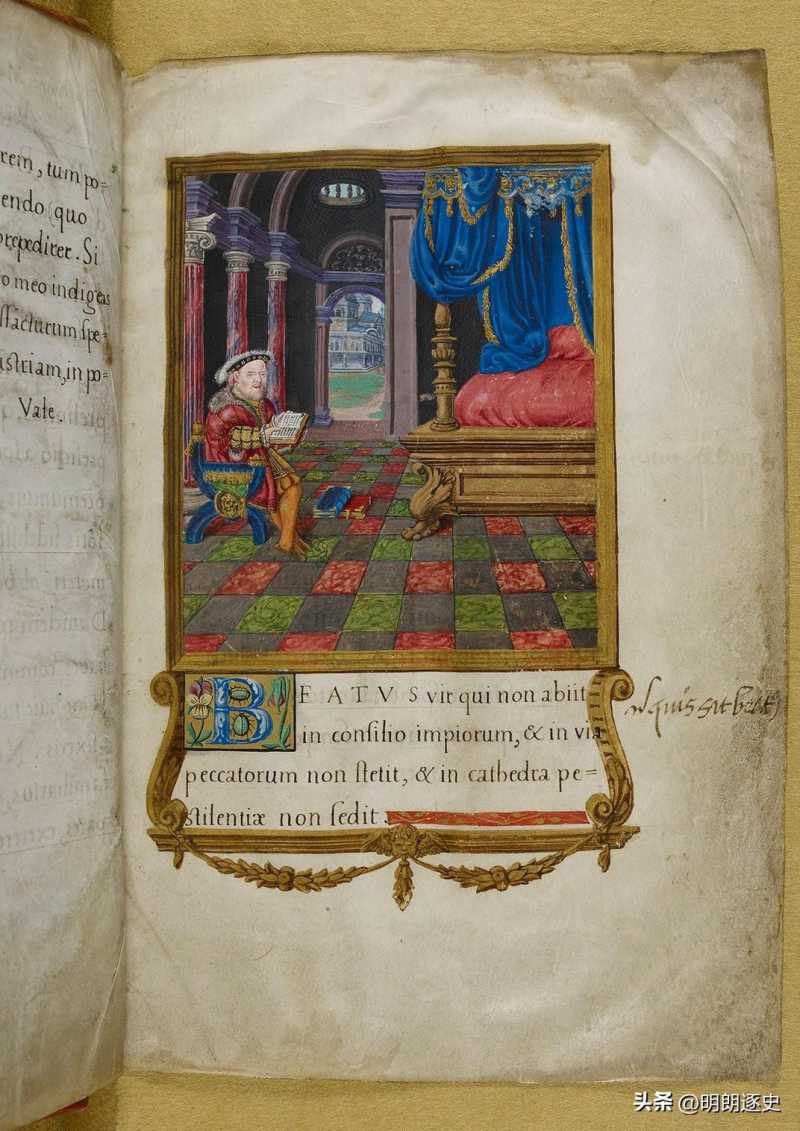 rem, tum po=
endo quo
prepedirer. Si
o meo indigeas
facturum spe=
ustriam, in po=
Vale.
BEATVS vir qui non abiit
in consilio impiorum, & in via
peccatorum non stetit, & in cathedra pe=
stilentiæ non sedit.
quis sit beat
头条 @明朗逐史